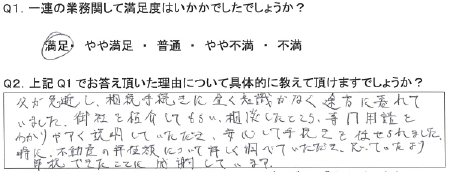 Q1. 一連の業務関して満足度はいかかでしたでしょうか？
満足 ・ やや満足 ・ 普通 ・ やや不満 ・ 不満
Q2. 上記Q1でお答え頂いた理由について具体的に教えて頂けますでしょうか？
父が急逝し、相続手続きに全く知識がなく途方に暮れて
いました。御社を紹介してもらい、相談したところ、専門用語を
わかりやすく説明していただき、安心して手続きを任せられました。
特に、不動産の評価額について詳しく調べていただき、思っていたより
節税できたことに感謝しています。